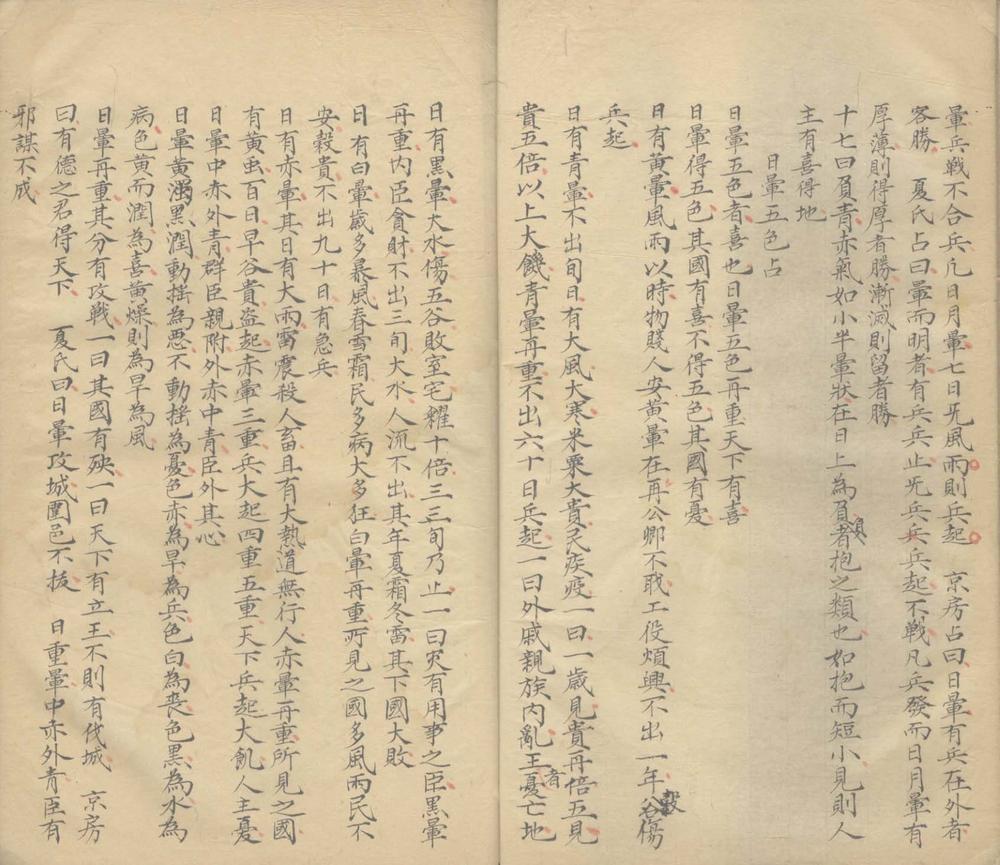 暈兵戰不合兵凢日月暈七日旡風雨則兵起　京房占曰日暈有兵在外者
客勝　夏氏占曰暈而明者有兵兵止旡兵兵兵起不戰凡兵發而日月暈有
厚薄則得厚者勝漸減則留者勝
十七曰負青赤氣如小半暈狀在日上為負負者抱之類也如抱而短小見則人
主有喜得地
日暈五色占
日暈五色者喜也日暈五色再重天下有喜
日暈得五色其國有喜不得五色其國有憂
日有黃暈風雨以時物賤人安黃暈在再公卿不戢工役煩興不出一年穀傷
兵起
日有青暈不出旬日有大風大寒米粟大貴旡疾疫一曰一歲見貴再倍五見
貴五倍以上大饑青暈再重不出六十日兵起一曰外戚親族內亂王者憂亡地
日有黑暈大水傷五谷敗室宅糴十倍三三旬乃止一曰灾有用事之臣黑暈
再重內臣貪財不出三旬大水人流不出其年夏霜冬雷其下國大敗
日有白暈歲多暴風春雪霜民多病犬多狂白暈再重所見之國多風雨民不
安穀貴不出九十日有急兵
日有赤暈其日有大雨雷震殺人畜且有大熱道無行人赤暈再重所見之國
有黃虫百日旱谷貴盜起赤暈三重兵大起四重五重天下兵起大飢人主憂
日暈中赤外青群臣親附外赤中青臣外其心
日暈黃濁黑潤動搖為惡不動搖為憂色赤為旱為兵色白為喪色黑為水為
病色黃而潤為喜黃燥則為旱為風
日暈再重其分有攻戰一曰其國有殃一曰天下有立王不則有伐城　京房
曰有德之君得天下　夏氏曰日暈攻城圍邑不拔　日重暈中赤外青臣有
邪謀不成